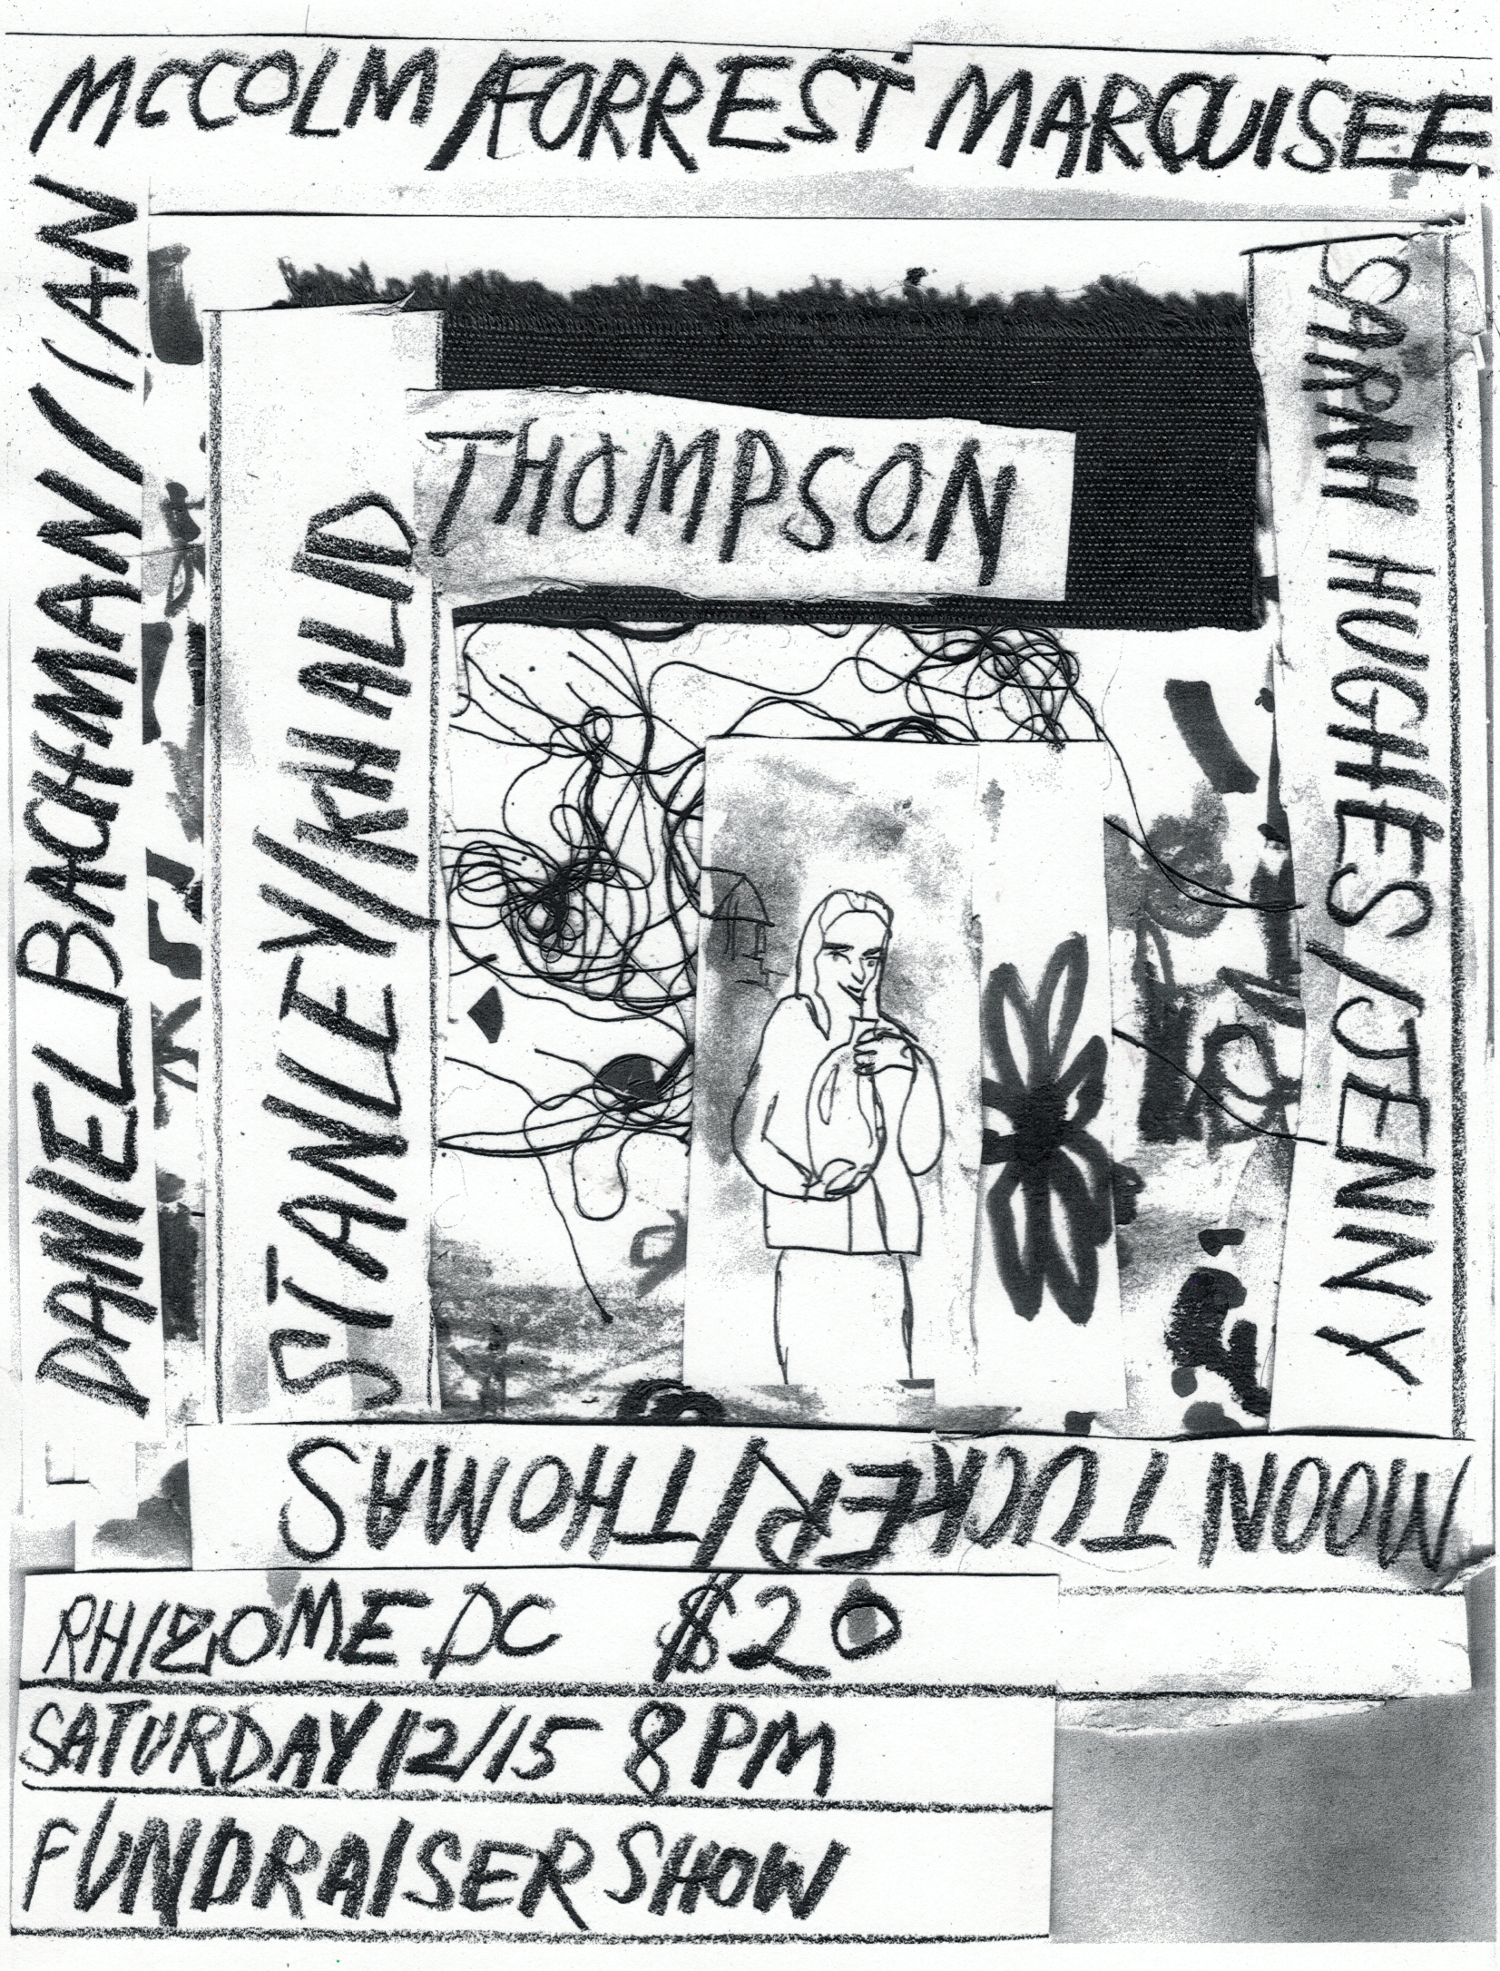 DANIEL BACHMAN / IAN
MCCOLM / FORREST MARQUISEE
SARAH HUGHES / JENNY
MOON TUCKER / THOMAS
STANLEY / KHALID
THOMPSON
RHIZOME DC $20
SATURDAY 12/15 8PM
FUNDRAISER SHOW